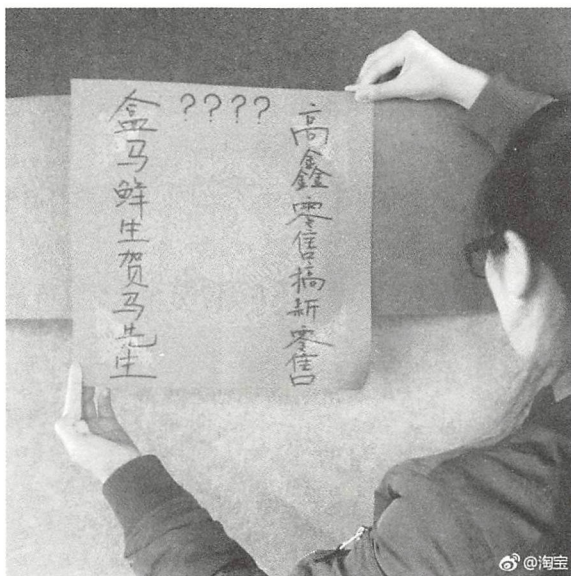 ????
高鑫零售搞新零售
盒马鲜生贺马先生
@淘宝